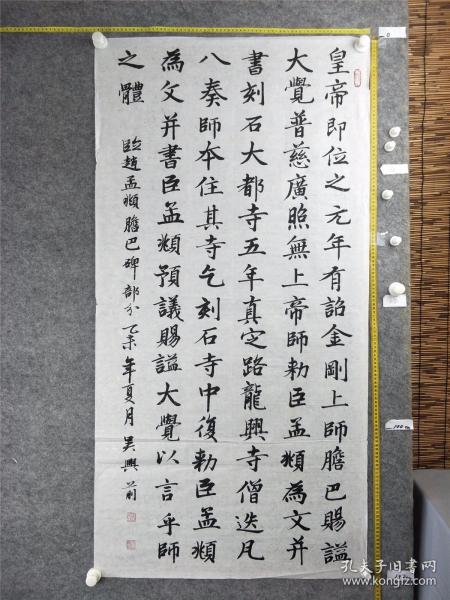 皇帝即位之元年有詔金剛上師膽巴賜謚
大覺普慈廣照無上帝師勅臣孟頫為文并
書刻石大都寺五年真定路龍興寺僧迭凡
八奏師本住其寺乞刻石寺中復勅臣孟頫
為文并書臣孟頫預議賜謚大覺以言乎師
之體
臨趙孟頫膽巴碑部分乙未年夏月吳興
孔夫子旧书网
www.kongfz.com